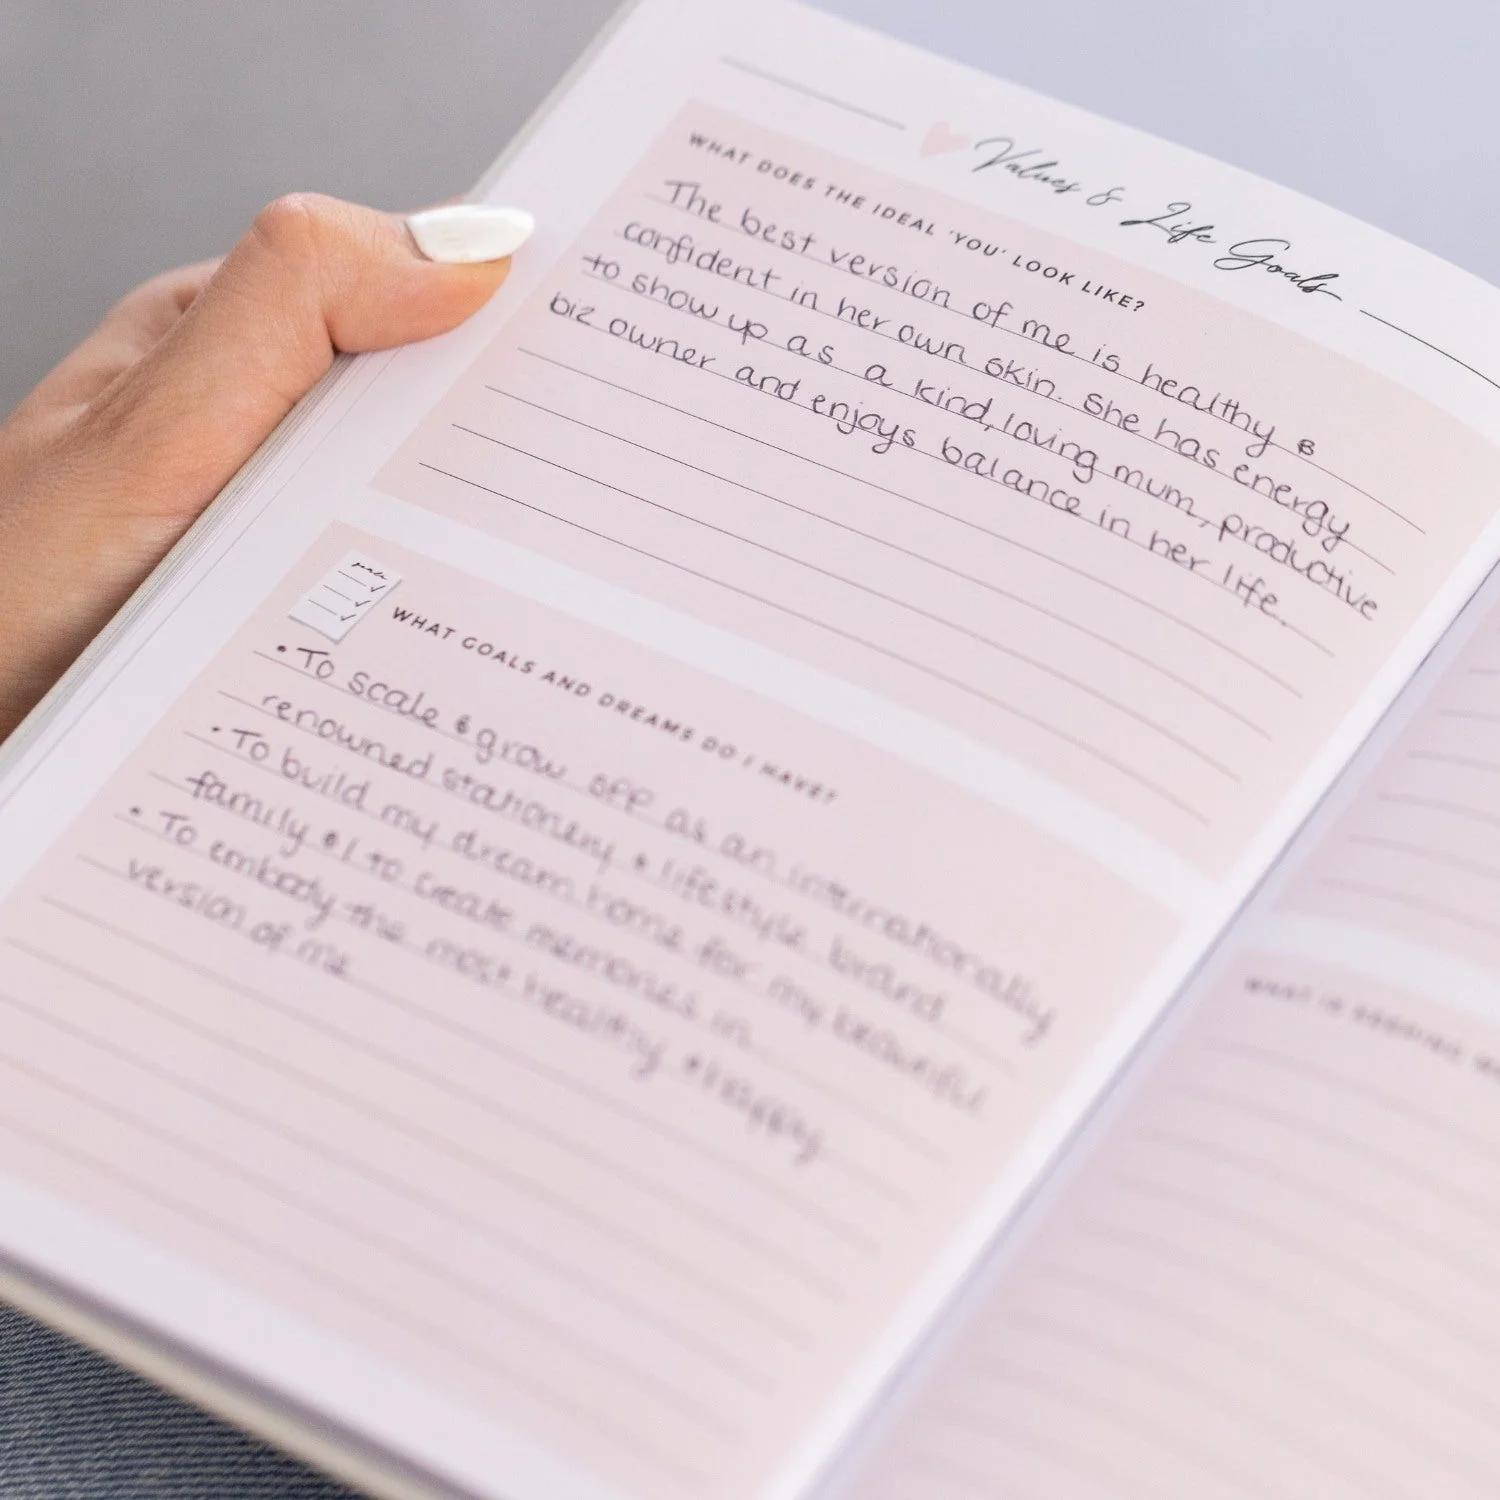 Values & Life Goals
WHAT DOES THE IDEAL 'YOU' LOOK LIKE?
The best version of me is healthy &
confident in her own skin. She has energy
to show up as a kind, loving mum, productive
biz owner and enjoys balance in her life.
WHAT GOALS AND DREAMS DO I HAVE?
• To scale & grow off as an internationally
renowned stationery & lifestyle brand
• To build my dream home for my beautiful
family & to create memories in
• To embody the most healthy & happy
version of me
WHAT IS